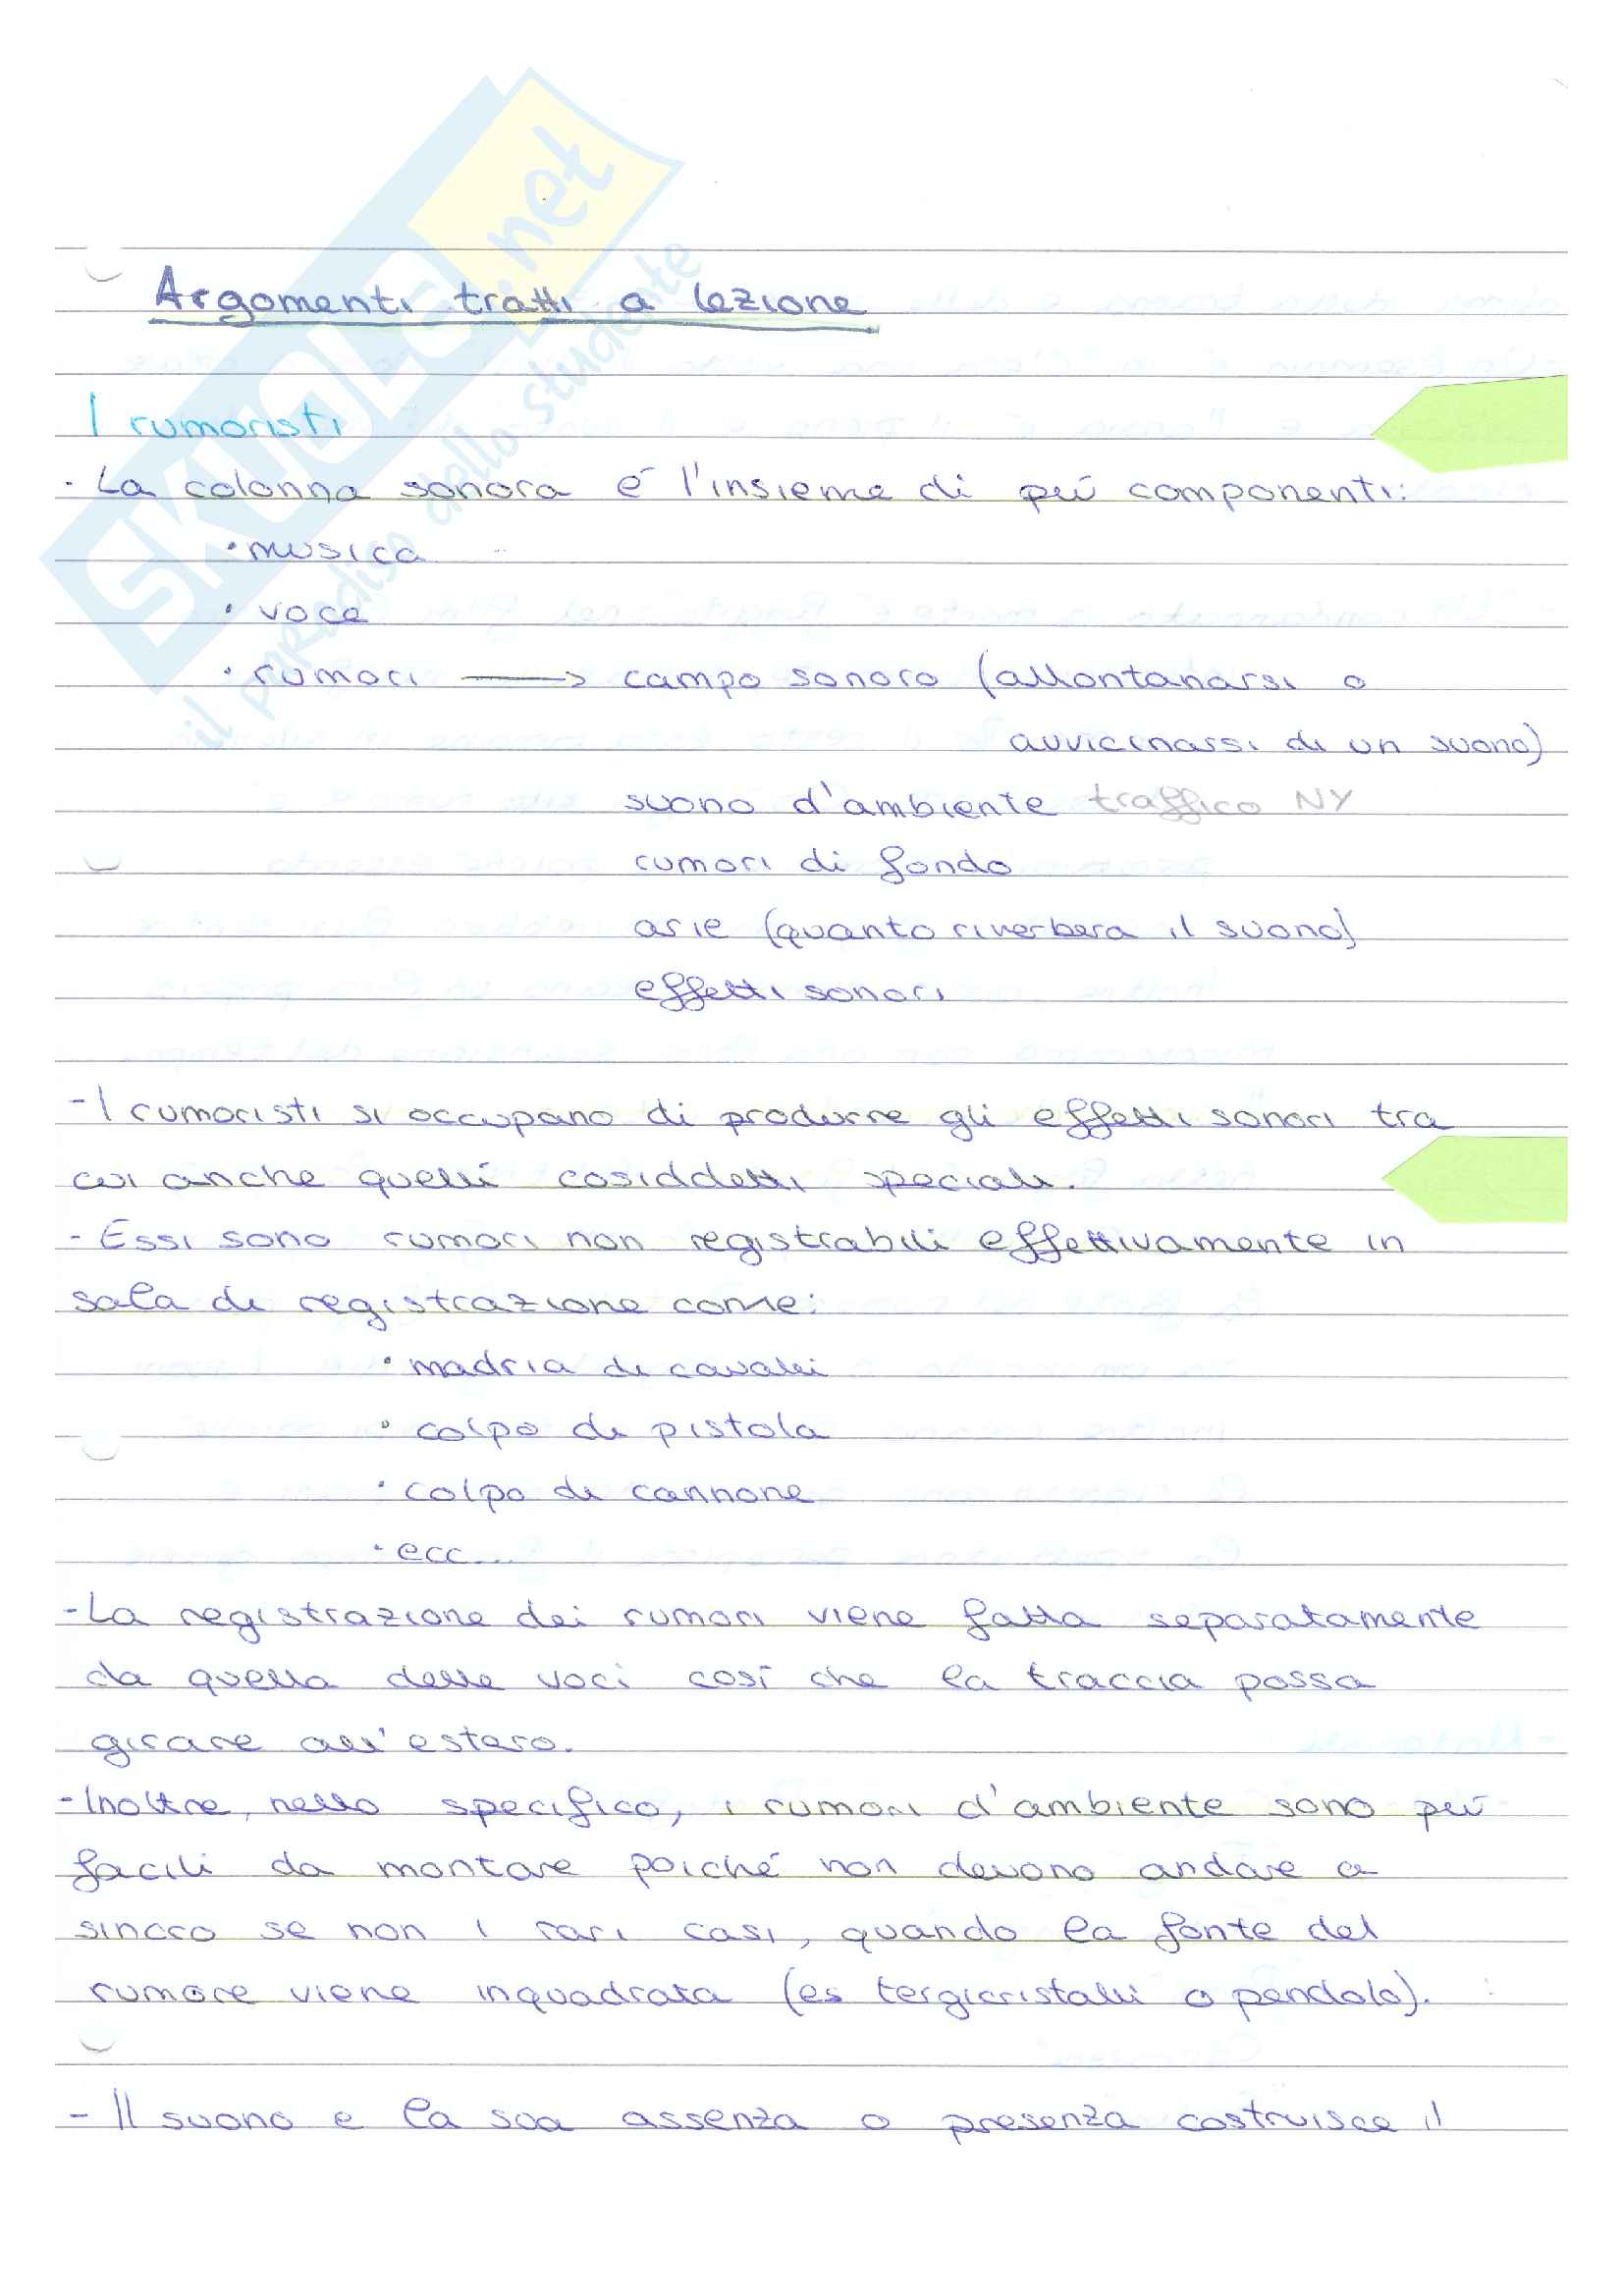 SKUOLA.net
il paradiso dello studente
Argomenti tratti a lezione
I rumoristi
· La colonna sonora é l'insieme di più componenti:
· musica
· voce
· rumori → campo sonoro (allontanarsi o
avvicinarsi di un suono)
suono d'ambiente traffico NY
rumori di fondo
arie (quanto riverbera il suono)
effetti sonori
- I rumoristi si occupano di produrre gli effetti sonori tra
cui anche quelli cosiddetti speciali.
- Essi sono rumori non registrabili effettivamente in
sala di registrazione come:
· madria di cavalli
· colpo di pistola
· colpo di cannone
· ecc...
- La registrazione dei rumori viene fatta separatamente
da quella delle voci così che la traccia possa
girare all'estero.
- Inoltre, nello specifico, i rumori d'ambiente sono più
facili da montare poiché non devono andare a
sincro se non i rari casi, quando la fonte del
rumore viene inquadrata (es tergicristalli o pendolo).
- Il suono e la sua assenza o presenza costruisce il